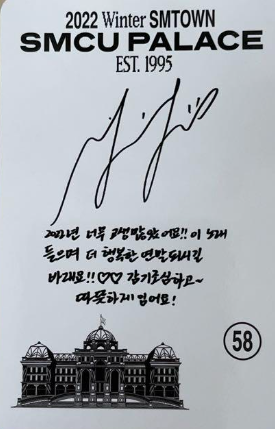 2022 Winter SMTOWN
SMCU PALACE
EST. 1995
2022년 너무 고생많았어요!! 이 노래
들으며 더 행복한 연말 되시길
바래요!!♡♡ 감기조심하고~
따뜻하게 입어요!
58